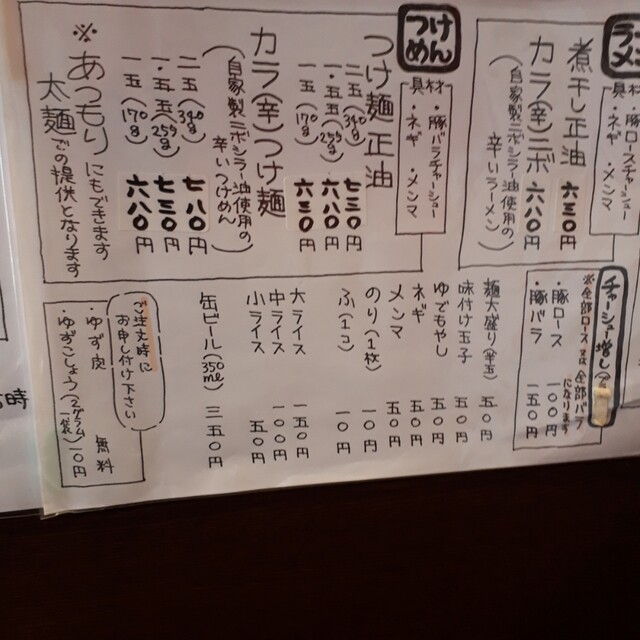 ラー
メン
具材
・豚ロースチャーシュー
・ネギ ・メンマ
煮干し正油 六三〇円
カラ(辛)ニボ 六八〇円
(自家製ニボシラー油使用の
辛いラーメン)
つけ
めん
具材
・豚バラチャーシュー
・ネギ ・メンマ
つけ麺正油
二五(340g) 七三〇円
一・五五(255g) 六八〇円
一五(170g) 六三〇円
カラ(辛)つけ麺
(自家製ニボシラー油使用の
辛いつけめん)
二五(340g) 七八〇円
一・五五(255g) 七三〇円
一五(170g) 六八〇円
※あつもりにもできます
太麺での提供となります
チャーシュー増し
※全部ロース又は全部バラ
になります
・豚ロース 一〇〇円
・豚バラ 一五〇円
麺大盛り(半玉) 五〇円
味付け玉子 五〇円
ゆでもやし 五〇円
ネギ 五〇円
メンマ 五〇円
のり(1枚) 一〇円
ふ(1コ) 一〇円
大ライス 一五〇円
中ライス 一〇〇円
小ライス 五〇円
缶ビール(350ml) 三五〇円
ご注文時に
お申し付け下さい
・ゆず皮 無料
・ゆずこしょう(2グラム一袋) 一〇円
時